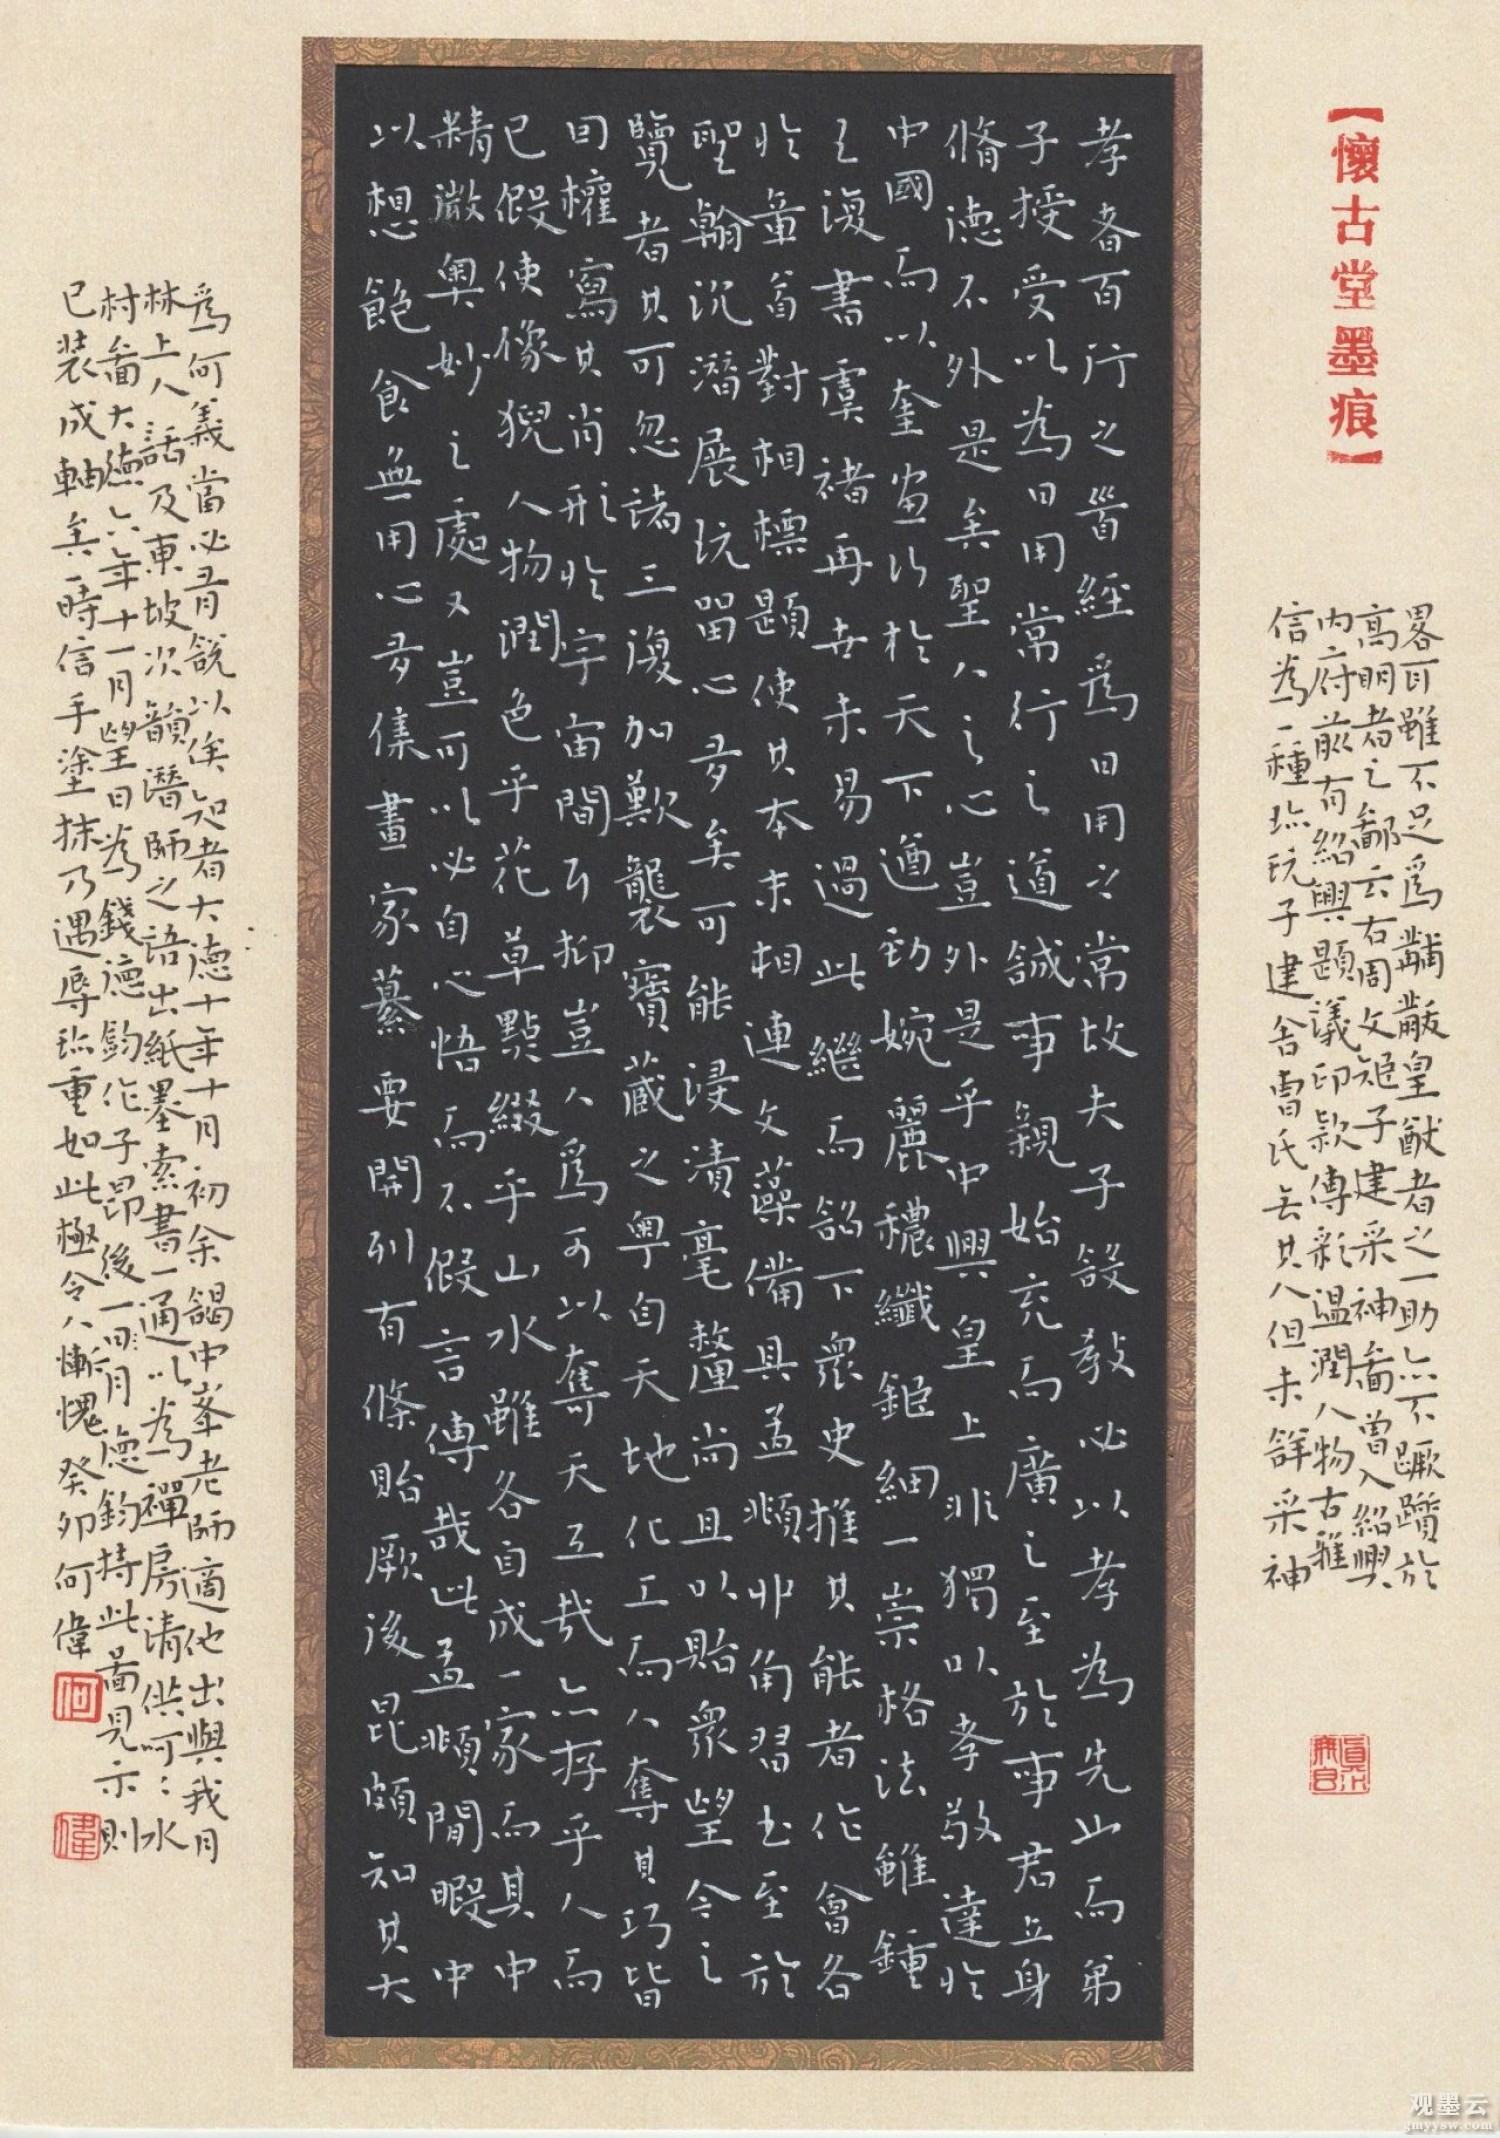 【懷古堂墨痕】
孝者百行之首經爲日用之常故夫子設教必以孝為先此而弟
子授受以為日用常行之道誠事親始充而廣之至於事君立身
脩德不外是矣聖人之心豈外是乎中興皇上非獨以孝敬達於
中國而以奎畫於天下遒勁婉麗穠纖鉅細一崇格法雖鍾
王復書虞褚再世未易過此繼而詔下衆史推其能者作會各
於章首對相標題使其本末相連文藻備具孟頫丱角習書至於
聖翰沉潛展玩留心多矣可能浸漬毫釐尚且以貽衆望今之
覽者其可忽諸三復加歎襲寶藏之粵自天地化工而人奪其巧皆
曰權寫其肖形於宇宙間耳抑豈人爲可以奪天工哉亦存乎人而
已假使像猊人物潤色乎花草點綴乎山水雖各自成一家而其中
精微奧妙之處又豈可以必自心悟而不假言傳哉此孟頫閒暇中
以想飽食無用心多集畫家纂要開列有條貽厥後昆頗知其大
畧耳雖不足爲黼黻皇猷者之一助亦不蹶躓於
高明者之鄙云右周文矩子建采神啚曾入紹興
内府前有紹興題議印款傅彩温潤人物古雅
信為一種珎玩子建舍曹氏無其人但未詳采神
爲何義當必有説以俟知者大德十年十月初余謁中峯老師適他出與我月
林上人話及東坡次韻潛師之語出紙墨索書一通以為禪房清供呵：水
村啚大德六年十一月望日為錢德鈞作子昂後一月德鈞持此啚見示則
已装成軸矣一時信手塗抹乃遇辱珎重如此極令人慚愧癸卯何偉
何
偉
观墨云
gmyysw.com